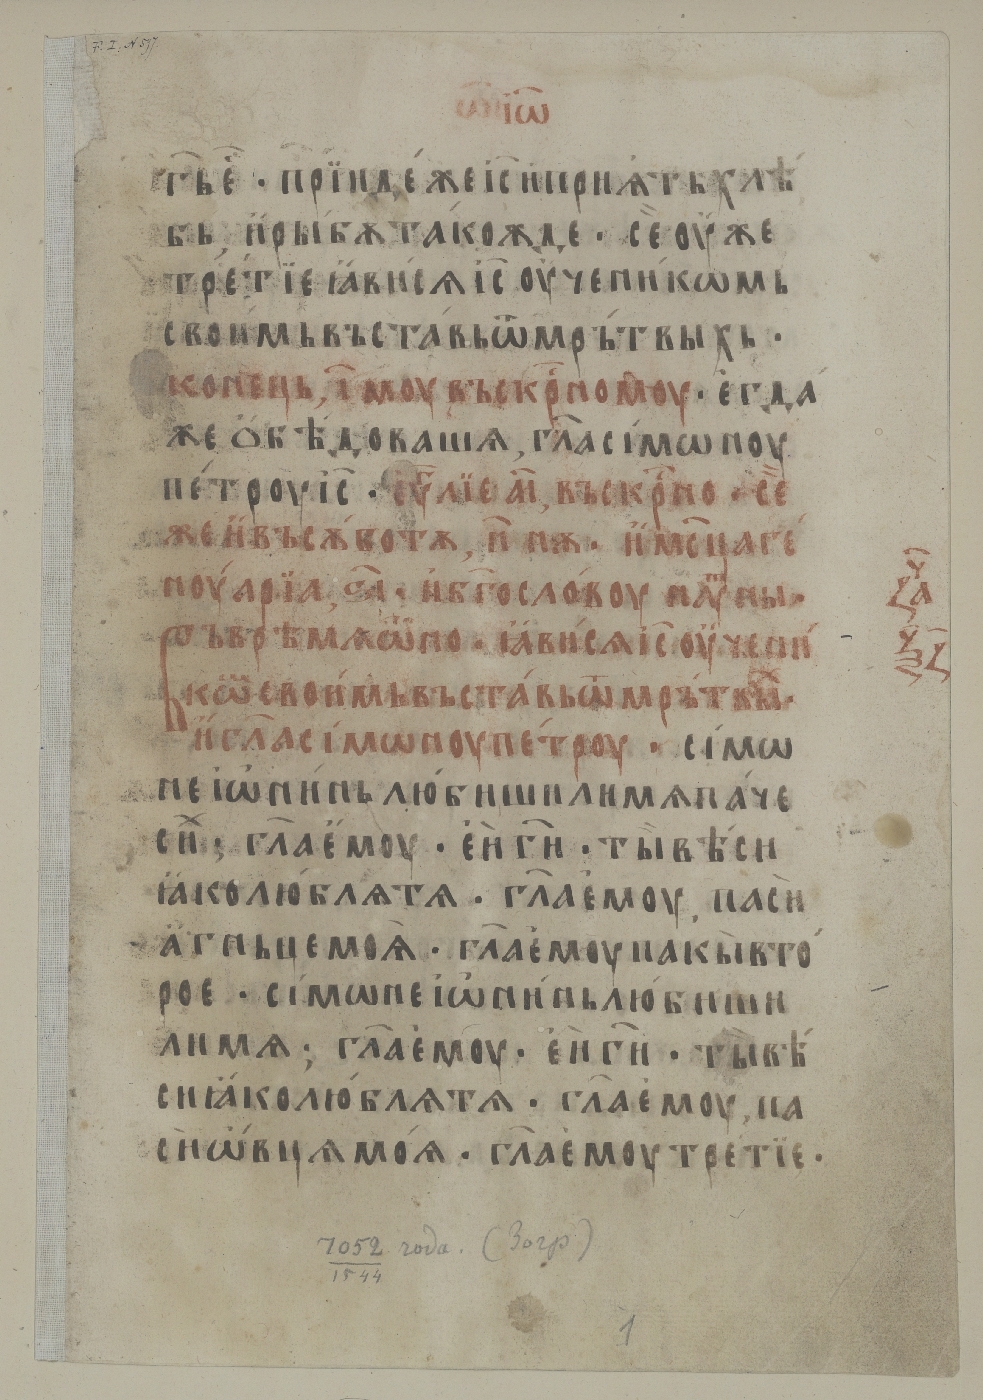 F. I. N 577
ѿ іѡ҃
гь е҃ · прїиде́ же і҃с и прия́ть хлѣ́
бь, и҆ ры́бѫ та́кожде · сѐ оу҆́же
тре́тїе ꙗ҆ви́сѧ і҃с оу҆чени́кѡмь
свои́мь въста́вь ѿ мръ́твыхь ·
конець, і҃ моу въскр҃номоу · е҆гда́
же ѻ҆бѣ́доваша, гл҃а сі́мѡноу
пе́троу і҃с · еѵ҃лїе а҃і, въскр҃но · сѐ
же и҆ въ сѫ́ботѫ, н҃ нѫ · и҆ мс҃ца ге
ноуа́рїа,
съ врѣ́мѧ ѡ҆́но · ꙗ҆ви́сѧ і҃с оу҆чени́
кѡ҃ свои́мь въста́вь ѿ мръ́твы҃ ·
и҆ гл҃а сі́мѡноу пе́троу · сі́мѡ
не іѡ҆ни́нь лю́биши ли мѧ па́че
си҃х; гл҃а е҆моу · е҆́и г҃и · ты̀ вѣ́си
ꙗ҆́ко люблѧ́ тѧ · гл҃а е҆моу, пасѝ
а҆́гньце моѧ̀ · гл҃а е҆моу пакы̀ вто́
рое · сі́мѡне іѡ҆ни́нь лю́биши
ли мѧ; гл҃а е҆моу · е҆́и г҃и · ты̀ вѣ́
си ꙗ҆́ко люблѧ́ тѧ · гл҃а е҆моу, па
сѝ ѡ҆́вцѧ моѧ́ · гл҃а е҆моу тре́тїе ·
7052 года. (Зогр)
1544
1